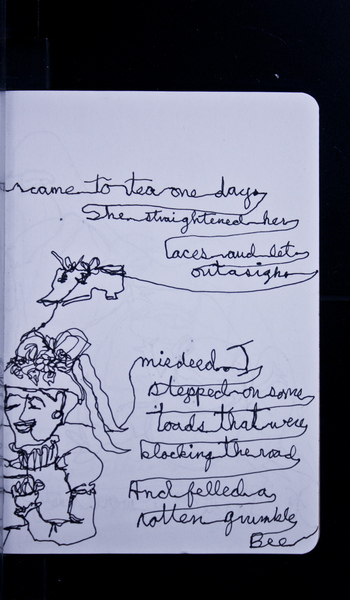 came to tea one day
She straightened her
laces and let
out a sigh
miedeed. I
stepped on some
toads that were
blocking the road
And felled a
rotten grumble
Bee